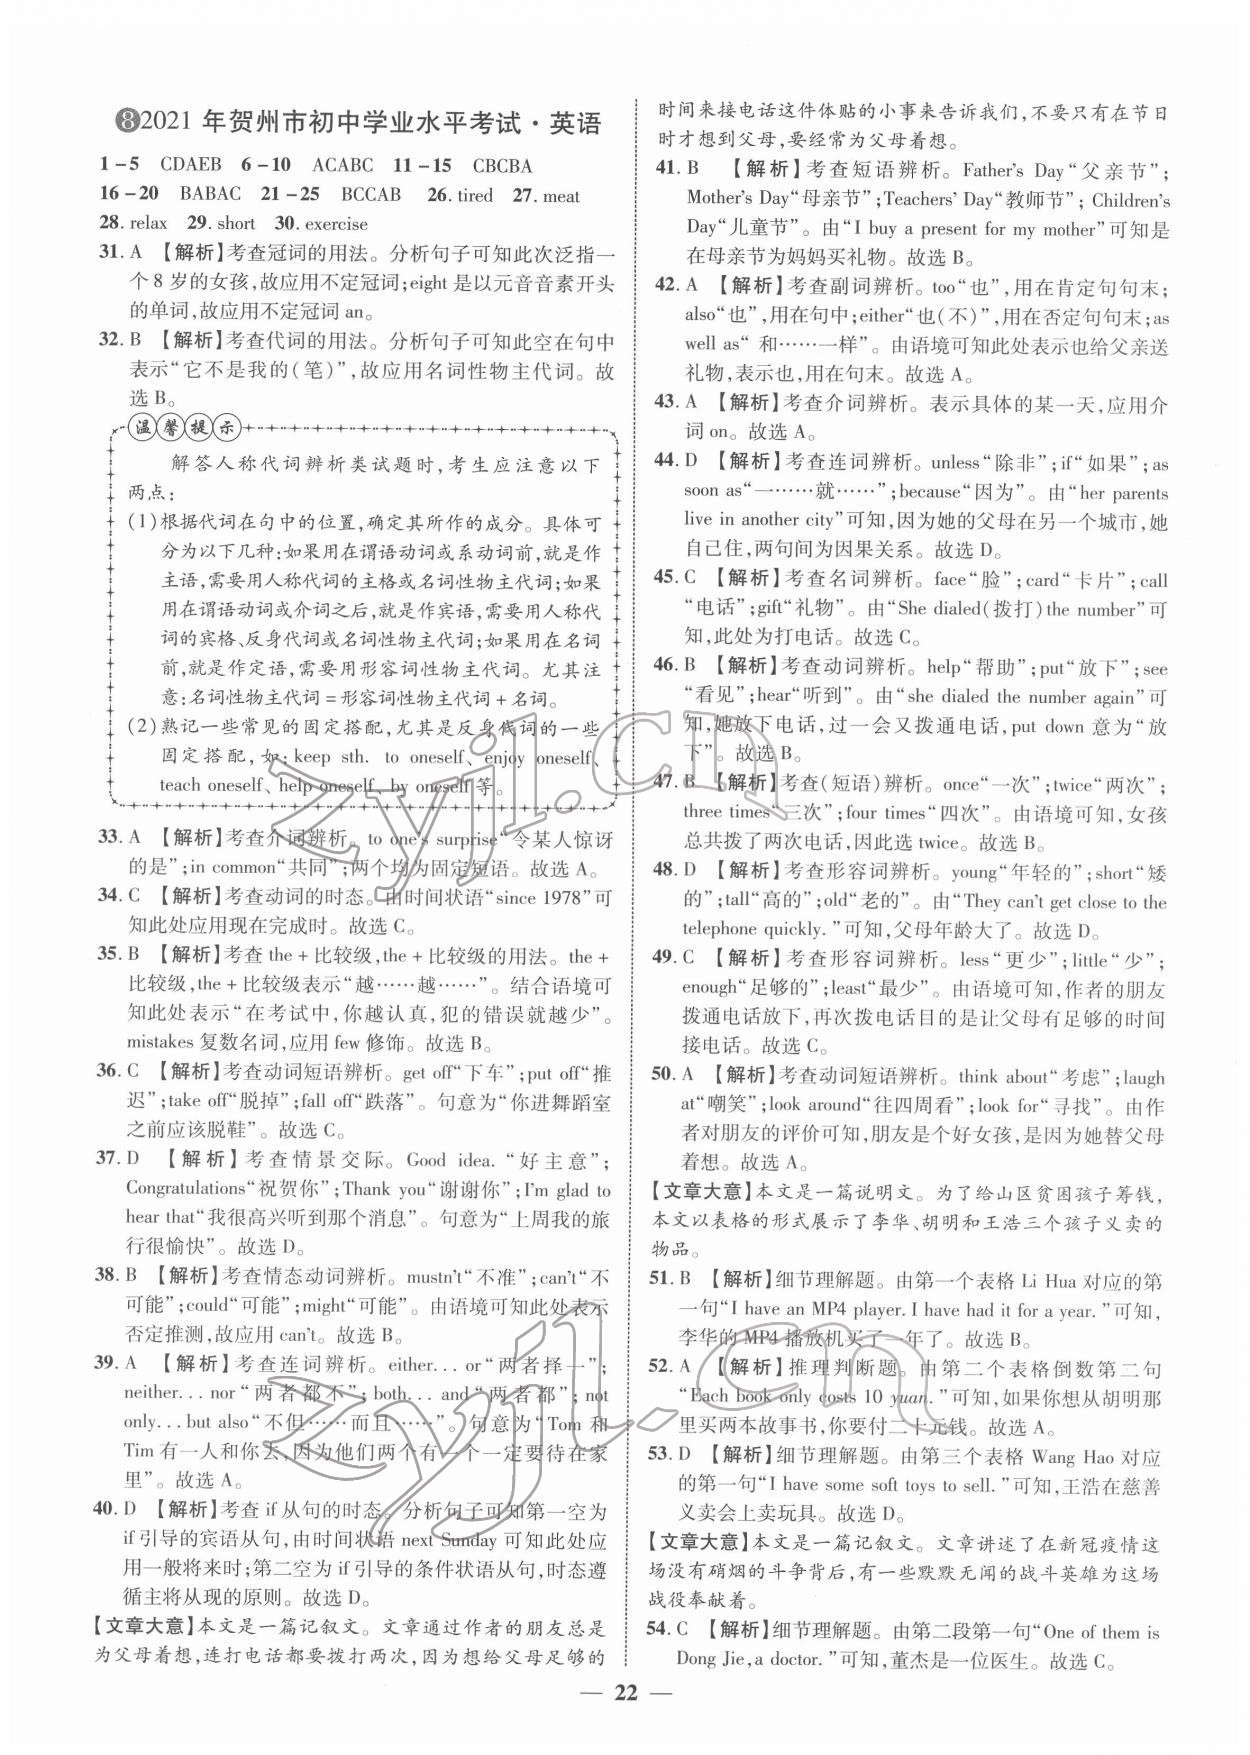 ⑧2021 年贺州市初中学业水平考试·英语
1-5 CDAEB 6-10 ACABC 11-15 CBCBA
16-20 BABAC 21-25 BCCAB 26. tired 27. meat
28. relax 29. short 30. exercise
31. A 【解析】考查冠词的用法。分析句子可知此次泛指一
个 8 岁的女孩,故应用不定冠词;eight 是以元音音素开头
的单词,故应用不定冠词 an。
32. B 【解析】考查代词的用法。分析句子可知此空在句中
表示“它不是我的(笔)”,故应用名词性物主代词。故
选 B。
温馨提示
解答人称代词辨析类试题时,考生应注意以下
两点:
(1)根据代词在句中的位置,确定其所作的成分。具体可
分为以下几种:如果用在谓语动词或系动词前,就是作
主语,需要用人称代词的主格或名词性物主代词;如果
用在谓语动词或介词之后,就是作宾语,需要用人称代
词的宾格、反身代词或名词性物主代词;如果用在名词
前,就是作定语,需要用形容词性物主代词。尤其注
意:名词性物主代词=形容词性物主代词+名词。
(2)熟记一些常见的固定搭配,尤其是反身代词的一些
固定搭配,如:keep sth. to oneself、enjoy oneself、
teach oneself、help oneself、by oneself 等。
33. A 【解析】考查介词辨析。to one's surprise“令某人惊讶
的是”;in common“共同”;两个均为固定短语。故选 A。
34. C 【解析】考查动词的时态。由时间状语“since 1978”可
知此处应用现在完成时。故选 C。
35. B 【解析】考查 the+比较级,the+比较级的用法。the+
比较级,the+比较级表示“越……越……”。结合语境可
知此处表示“在考试中,你越认真,犯的错误就越少”。
mistakes 复数名词,应用 few 修饰。故选 B。
36. C 【解析】考查动词短语辨析。get off“下车”;put off“推
迟”;take off“脱掉”;fall off“跌落”。句意为“你进舞蹈室
之前应该脱鞋”。故选 C。
37. D 【解析】考查情景交际。Good idea. “好主意”;
Congratulations“祝贺你”;Thank you“谢谢你”;I'm glad to
hear that“我很高兴听到那个消息”。句意为“上周我的旅
行很愉快”。故选 D。
38. B 【解析】考查情态动词辨析。mustn't“不准”;can't“不
可能”;could“可能”;might“可能”。由语境可知此处表示
否定推测,故应用 can't。故选 B。
39. A 【解析】考查连词辨析。either...or“两者择一”;
neither...nor“两者都不”;both...and“两者都”;not
only...but also“不但……而且……”。句意为“Tom 和
Tim 有一人和你去,因为他们两个有一个一定要待在家
里”。故选 A。
40. D 【解析】考查 if 从句的时态。分析句子可知第一空为
if 引导的宾语从句,由时间状语 next Sunday 可知此处应
用一般将来时;第二空为 if 引导的条件状语从句,时态遵
循主将从现的原则。故选 D。
【文章大意】本文是一篇记叙文。文章通过作者的朋友总是
为父母着想,连打电话都要拨打两次,因为想给父母足够的
时间来接电话这件体贴的小事来告诉我们,不要只有在节日
时才想到父母,要经常为父母着想。
41. B 【解析】考查短语辨析。Father's Day“父亲节”;
Mother's Day“母亲节”;Teachers' Day“教师节”;Children's
Day“儿童节”。由“I buy a present for my mother”可知是
在母亲节为妈妈买礼物。故选 B。
42. A 【解析】考查副词辨析。too“也”,用在肯定句句末;
also“也”,用在句中;either“也(不)”,用在否定句句末;as
well as“ 和……一样”。由语境可知此处表示也给父亲送
礼物,表示肯定,用在句末。故选 A。
43. A 【解析】考查介词辨析。表示具体的某一天,应用介
词 on。故选 A。
44. D 【解析】考查连词辨析。unless“除非”;if“如果”;as
soon as“一……就……”;because“因为”。由“her parents
live in another city”可知,因为她的父母在另一个城市,她
自己住,两句间为因果关系。故选 D。
45. C 【解析】考查名词辨析。face“脸”;card“卡片”;call
“电话”;gift“礼物”。由“She dialed(拨打)the number”可
知,此处为打电话。故选 C。
46. B 【解析】考查动词辨析。help“帮助”;put“放下”;see
“看见”;hear“听到”。由“she dialed the number again”可
知,她放下电话,过一会又拨通电话,put down 意为“放
下”。故选 B。
47. B 【解析】考查(短语)辨析。once“一次”;twice“两次”;
three times“三次”;four times“四次”。由语境可知,女孩
总共拨了两次电话,因此选 twice。故选 B。
48. D 【解析】考查形容词辨析。young“年轻的”;short“矮
的”;tall“高的”;old“老的”。由“They can't get close to the
telephone quickly.”可知,父母年龄大了。故选 D。
49. C 【解析】考查形容词辨析。less“更少”;little“少”;
enough“足够的”;least“最少”。由语境可知,作者的朋友
拨通电话放下,再次拨电话目的是让父母有足够的时间
接电话。故选 C。
50. A 【解析】考查动词短语辨析。think about“考虑”;laugh
at“嘲笑”;look around“往四周看”;look for“寻找”。由作
者对朋友的评价可知,朋友是个好女孩,是因为她替父母
着想。故选 A。
【文章大意】本文是一篇说明文。为了给山区贫困孩子筹钱,
本文以表格的形式展示了李华、胡明和王浩三个孩子义卖的
物品。
51. B 【解析】细节理解题。由第一个表格 Li Hua 对应的第
一句“I have an MP4 player. I have had it for a year.”可知,
李华的 MP4 播放机买了一年了。故选 B。
52. A 【解析】推理判断题。由第二个表格倒数第二句
“Each book only costs 10 yuan.”可知,如果你想从胡明那
里买两本故事书,你要付二十元钱。故选 A。
53. D 【解析】细节理解题。由第三个表格 Wang Hao 对应
的第一句“I have some soft toys to sell.”可知,王浩在慈善
义卖会上卖玩具。故选 D。
【文章大意】本文是一篇记叙文。文章讲述了在新冠疫情这
场没有硝烟的斗争背后,有一些默默无闻的战斗英雄为这场
战役奉献着。
54. C 【解析】细节理解题。由第二段第一句“One of them is
Dong Jie, a doctor.”可知,董杰是一位医生。故选 C。
— 22 —
zyjl.cn
zyjl.cn